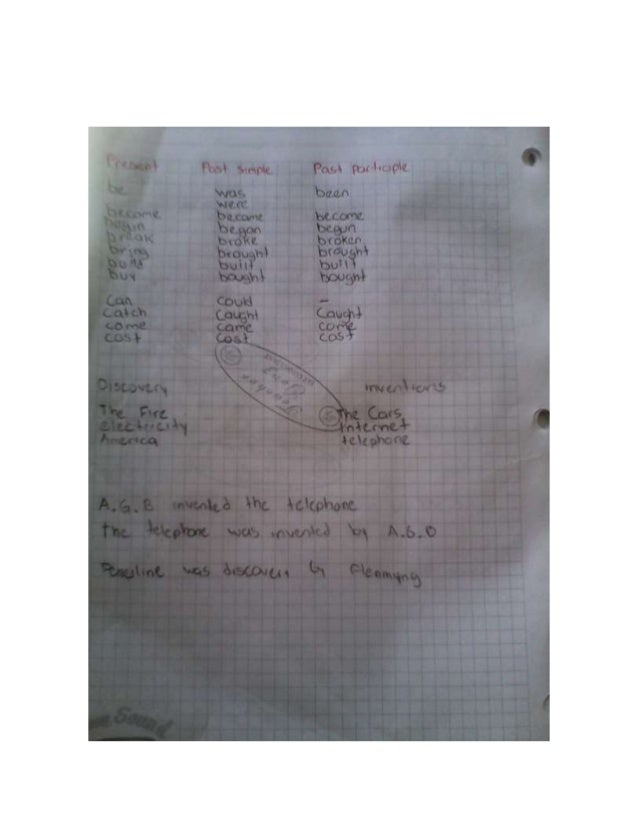 Present Past simple Past participle
be was been
were
become became become
begin began begun
break broke broken
bring brought brought
build built built
buy bought bought
can could –
catch caught caught
come came come
cost cost cost
Discovery inventions
The Fire The Cars
electricity internet
America telephone
A.G.B invented the telephone
the telephone was invented by A.G.B
was discovery by Flemmyng
Sound